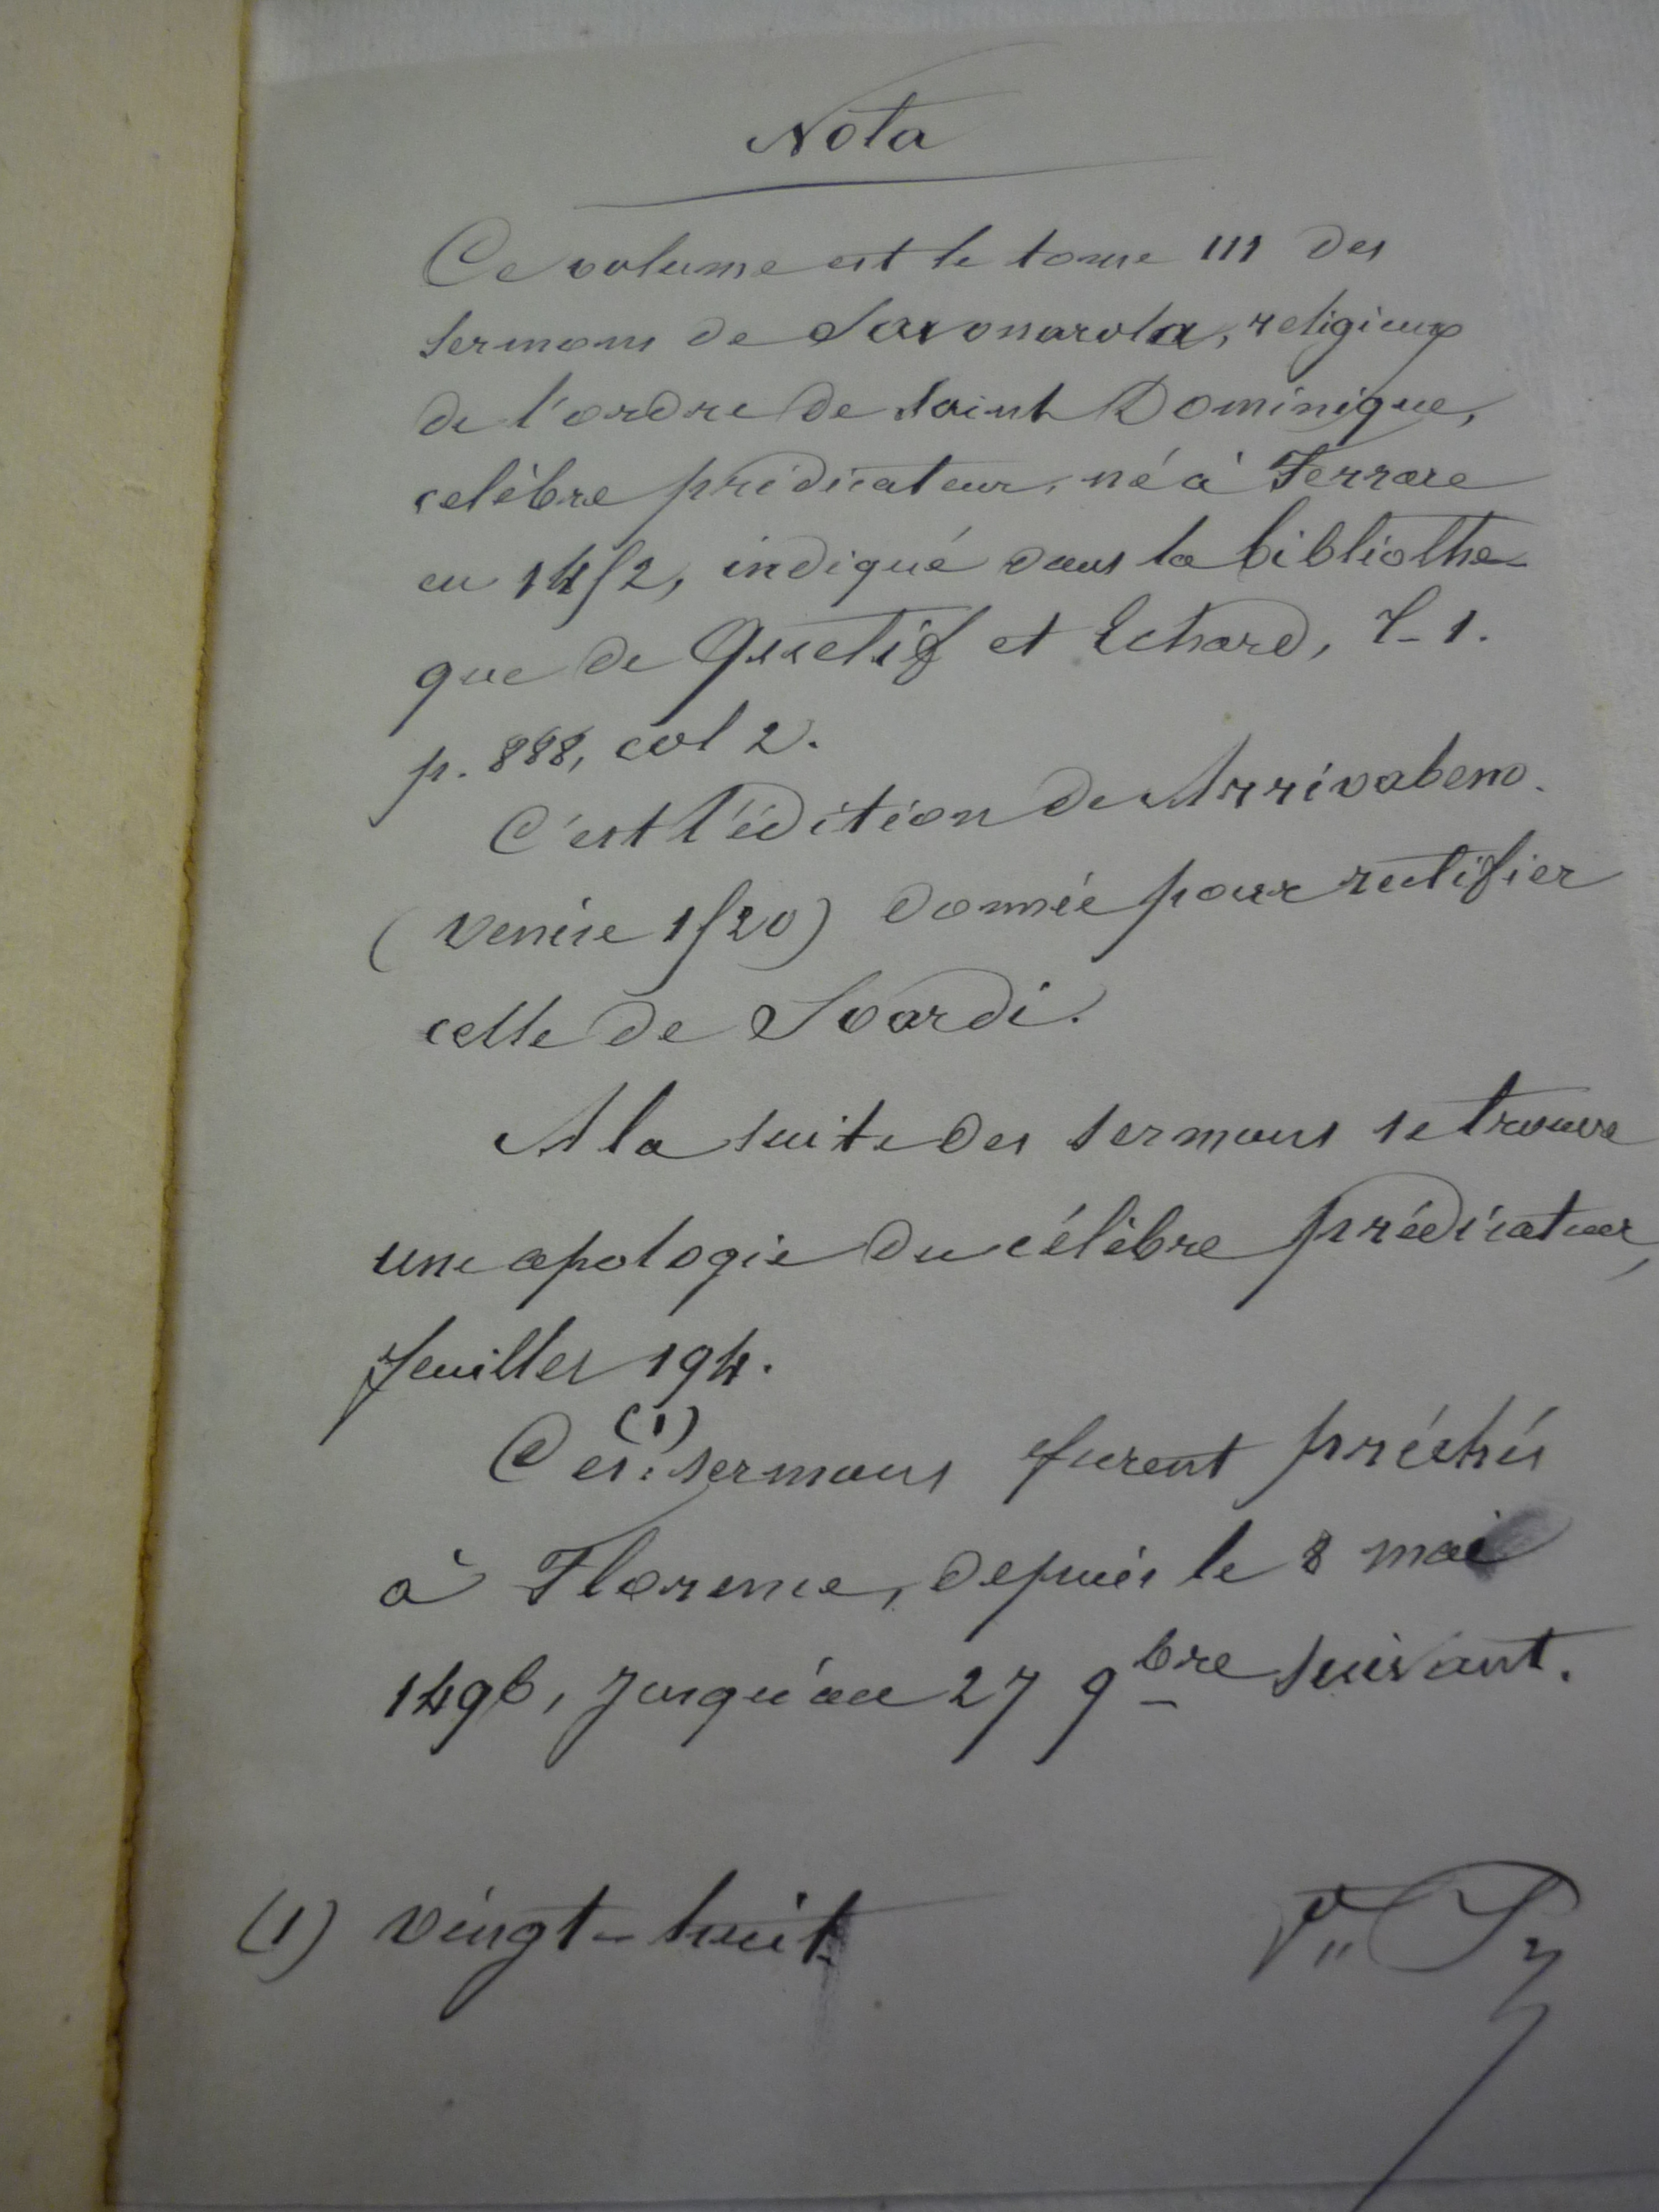 Nota
Ce volume est le tome III des
sermons de Savonarola, religieux
de l'ordre de saint Dominique,
celèbre prédicateur, né à Ferrare
en 1452, indiqué dans la bibliothe-
que de Quetif et Echard, T-1.
p. 888, col 2.
C'est l'édition de Arrivabeno.
(Venise 1520) donnée pour rectifier
celle de Soardi.
A la suite des sermons se trouve
une apologie du célèbre prédicateur,
feuillet 194.
Ces (1) sermons furent préchés
à Florence, depuis le 8 mai
1496, jusqu'au 27 9bre suivant.
(1) vingt-huit